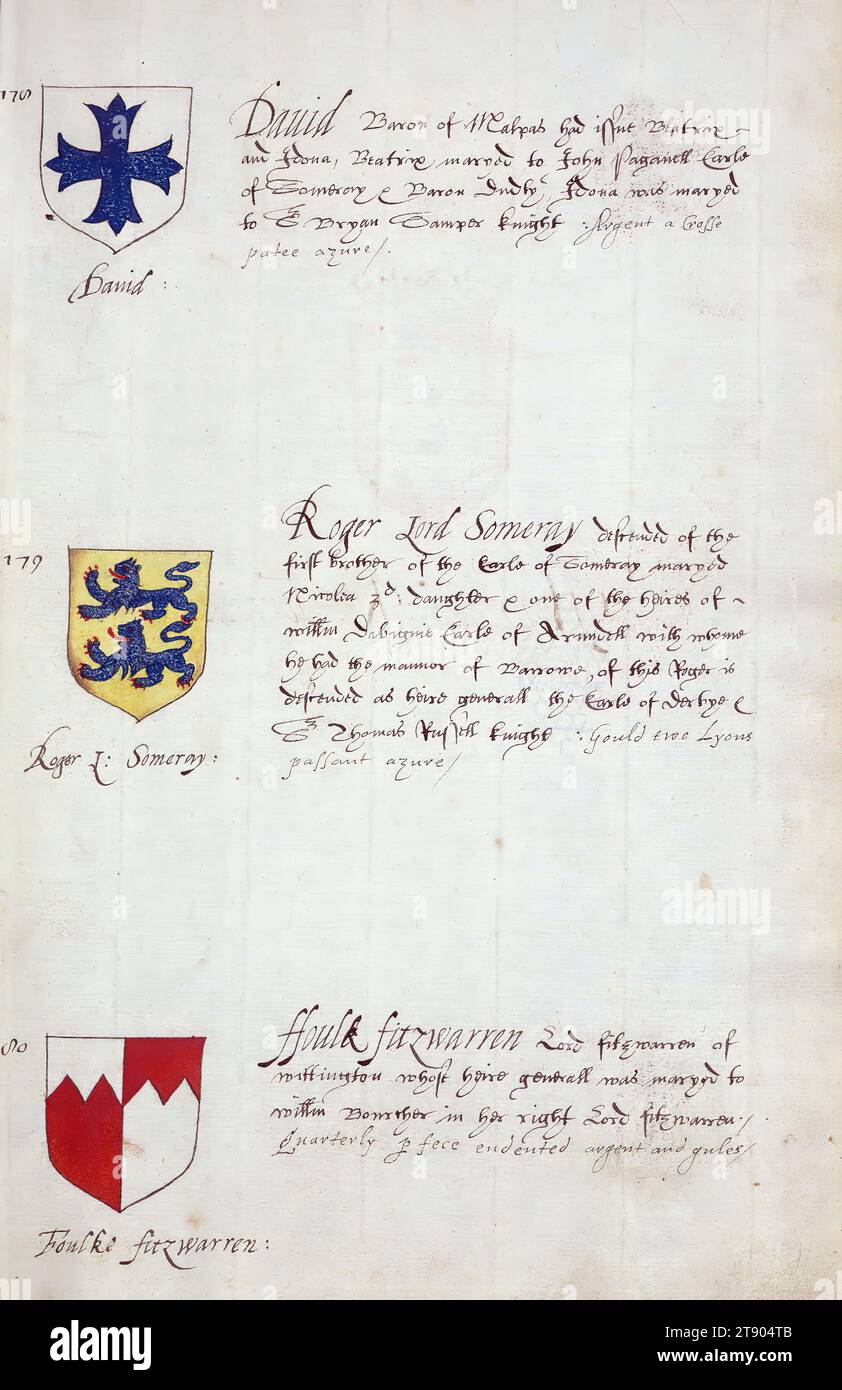 178
Dauid Baron of Malpas had issue Beatrix
and Idona, Beatrix maryed to John Paganell Earle
of Someray & Baron Dudly, Idona was maryed
to Sr Bryan Samper knight : Argent a Crosse
patee azure/.
Dauid :
179
Roger Lord Someray descended of the
first brother of the Earle of Someray maryed
Nicolea 3d: daughter & one of the heires of
willm Dabignie Earle of Arundell with whome
he had the mannor of Barrowe, of this Roger is
descended as heire generall the Earle of Derbye &
Sr Thomas Russell knight : Gould two Lyons
passant azure/
Roger L: Someray:
80
ffoulk fitzwarren Lord fitzwarren of
wittington whose heire generall was maryed to
willm Bourcher in her right Lord fitzwarren:/
Quarterly p fece endented argent and gules/
Foulke fitzwarren:
alamy
alamy
Image ID: 2T904TB
www.alamy.com